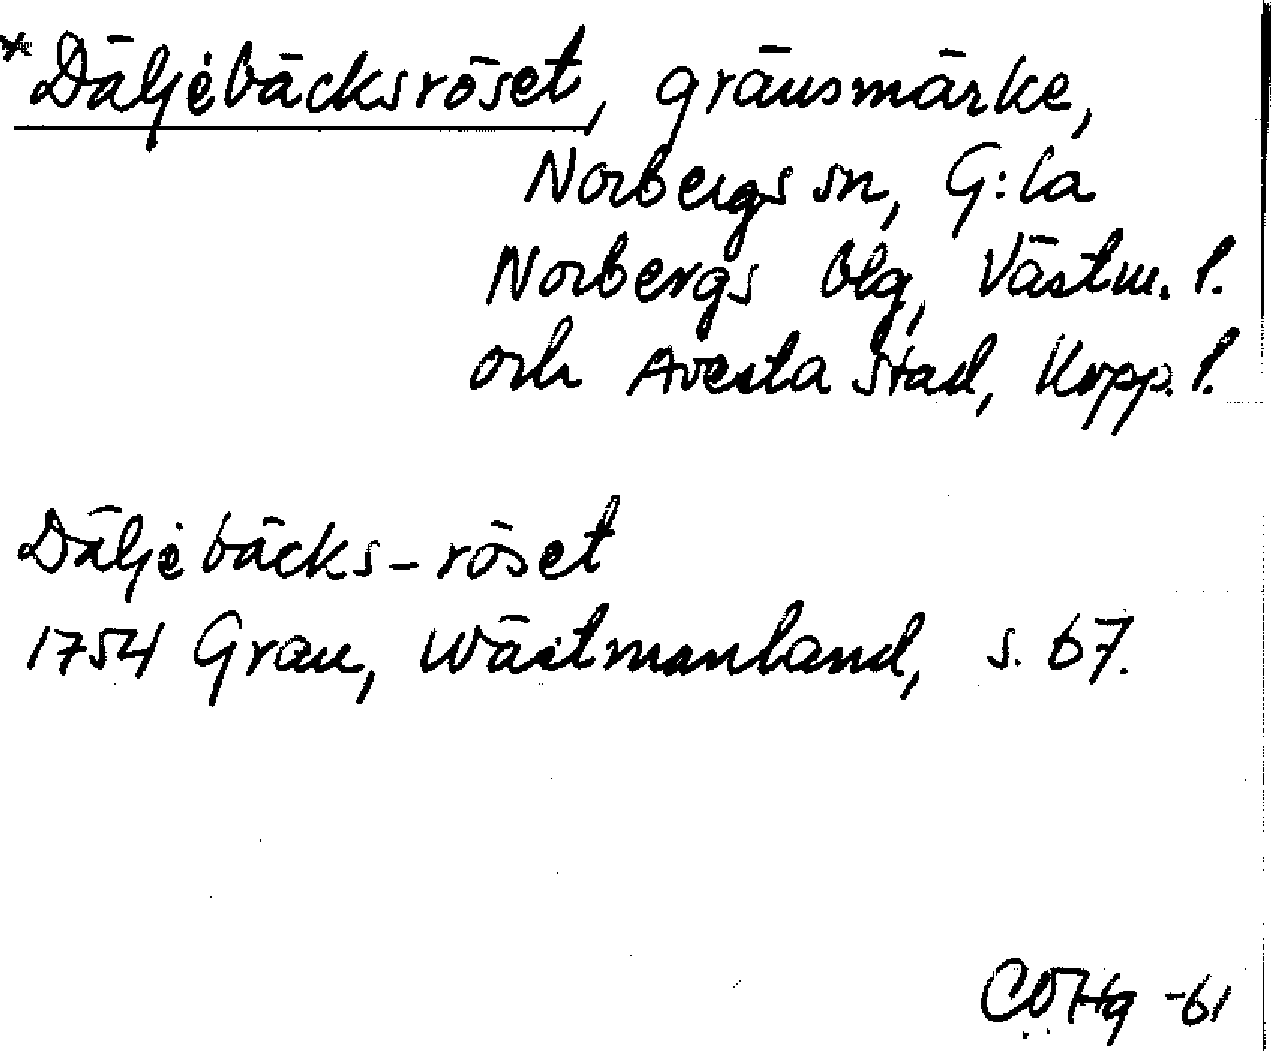 *Däljebäcksröset, gränsmärke,
Norbergs sn, G:la
Norbergs blg, Västm. l.
och Avesta stad, Kopp. l.
Däljebäcks-röset
1754 Grau, Wästmanland, s. 67.
-61